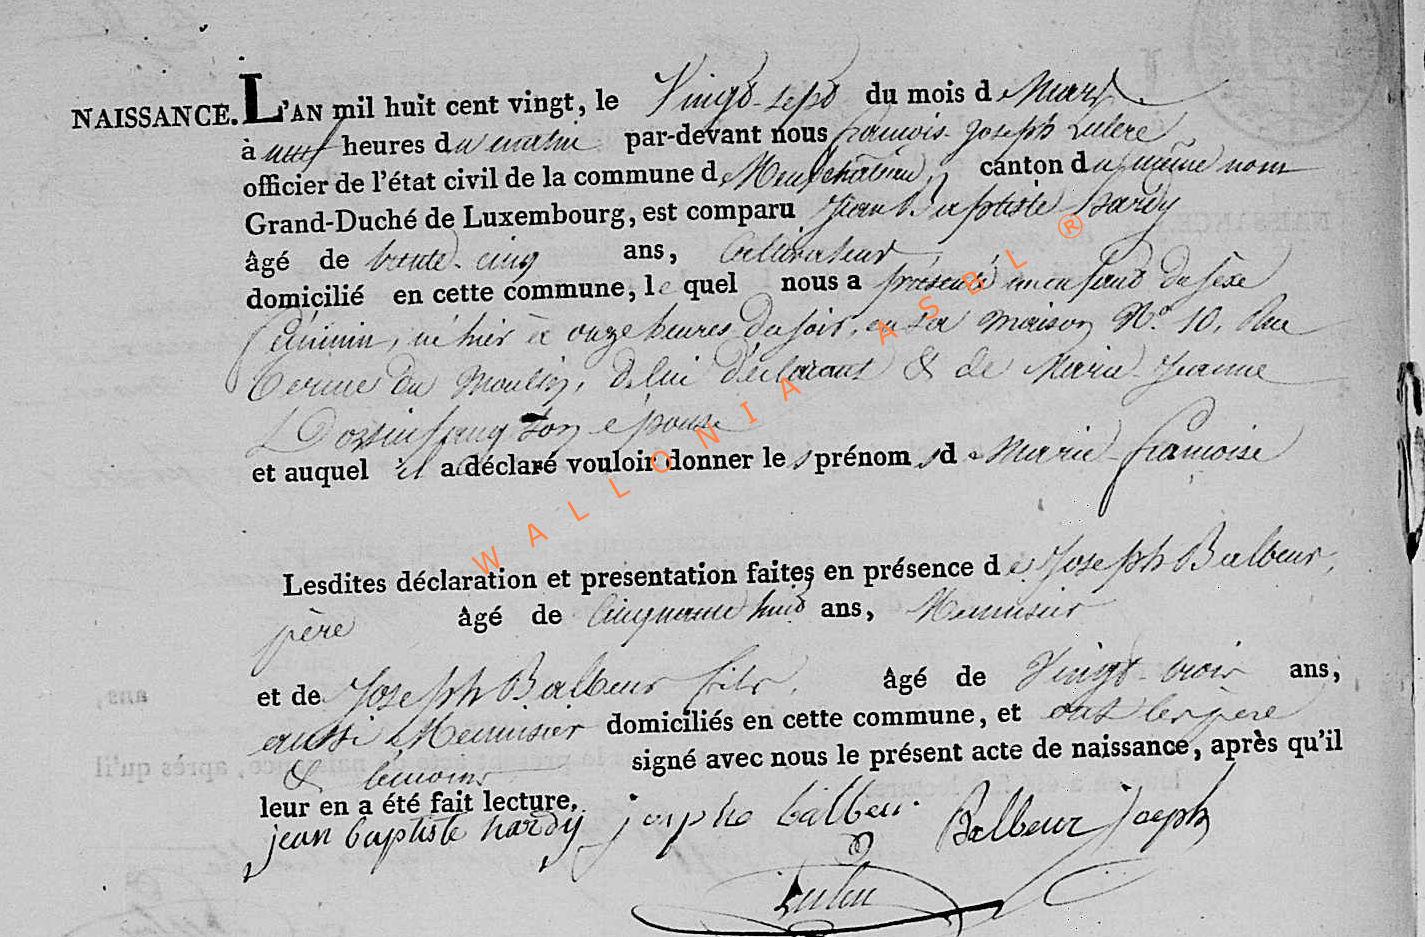 NAISSANCE. L'AN mil huit cent vingt, le Vingt-sept du mois de Mars
à neuf heures du matin par-devant nous françois Joseph
officier de l'état civil de la commune de Neufchâteau, canton du même nom
Grand-Duché de Luxembourg, est comparu Jean Baptiste hardy
âgé de trente-cinq ans, Cultivateur
domicilié en cette commune, le quel nous a présenté un enfant du sèxe
féminin, né hier à onze heures du soir, en sa maison N.o 10. Rue
du Moulin, de lui déclarant & de Marie Jeanne
son épouse
et auquel il a déclaré vouloir donner les prénoms de Marie françoise
Lesdites déclaration et presentation faites en présence de Joseph Balbeur,
père âgé de Cinquante huit ans, Menuisier
et de Joseph Balbeur fils, âgé de Vingt-trois ans,
aussi Menuisier domiciliés en cette commune, et ont les père
& témoins signé avec nous le présent acte de naissance, après qu'il
leur en a été fait lecture.
jean baptiste hardy josephe balbeur Balbeur joseph
WALLONIA ASBL ®